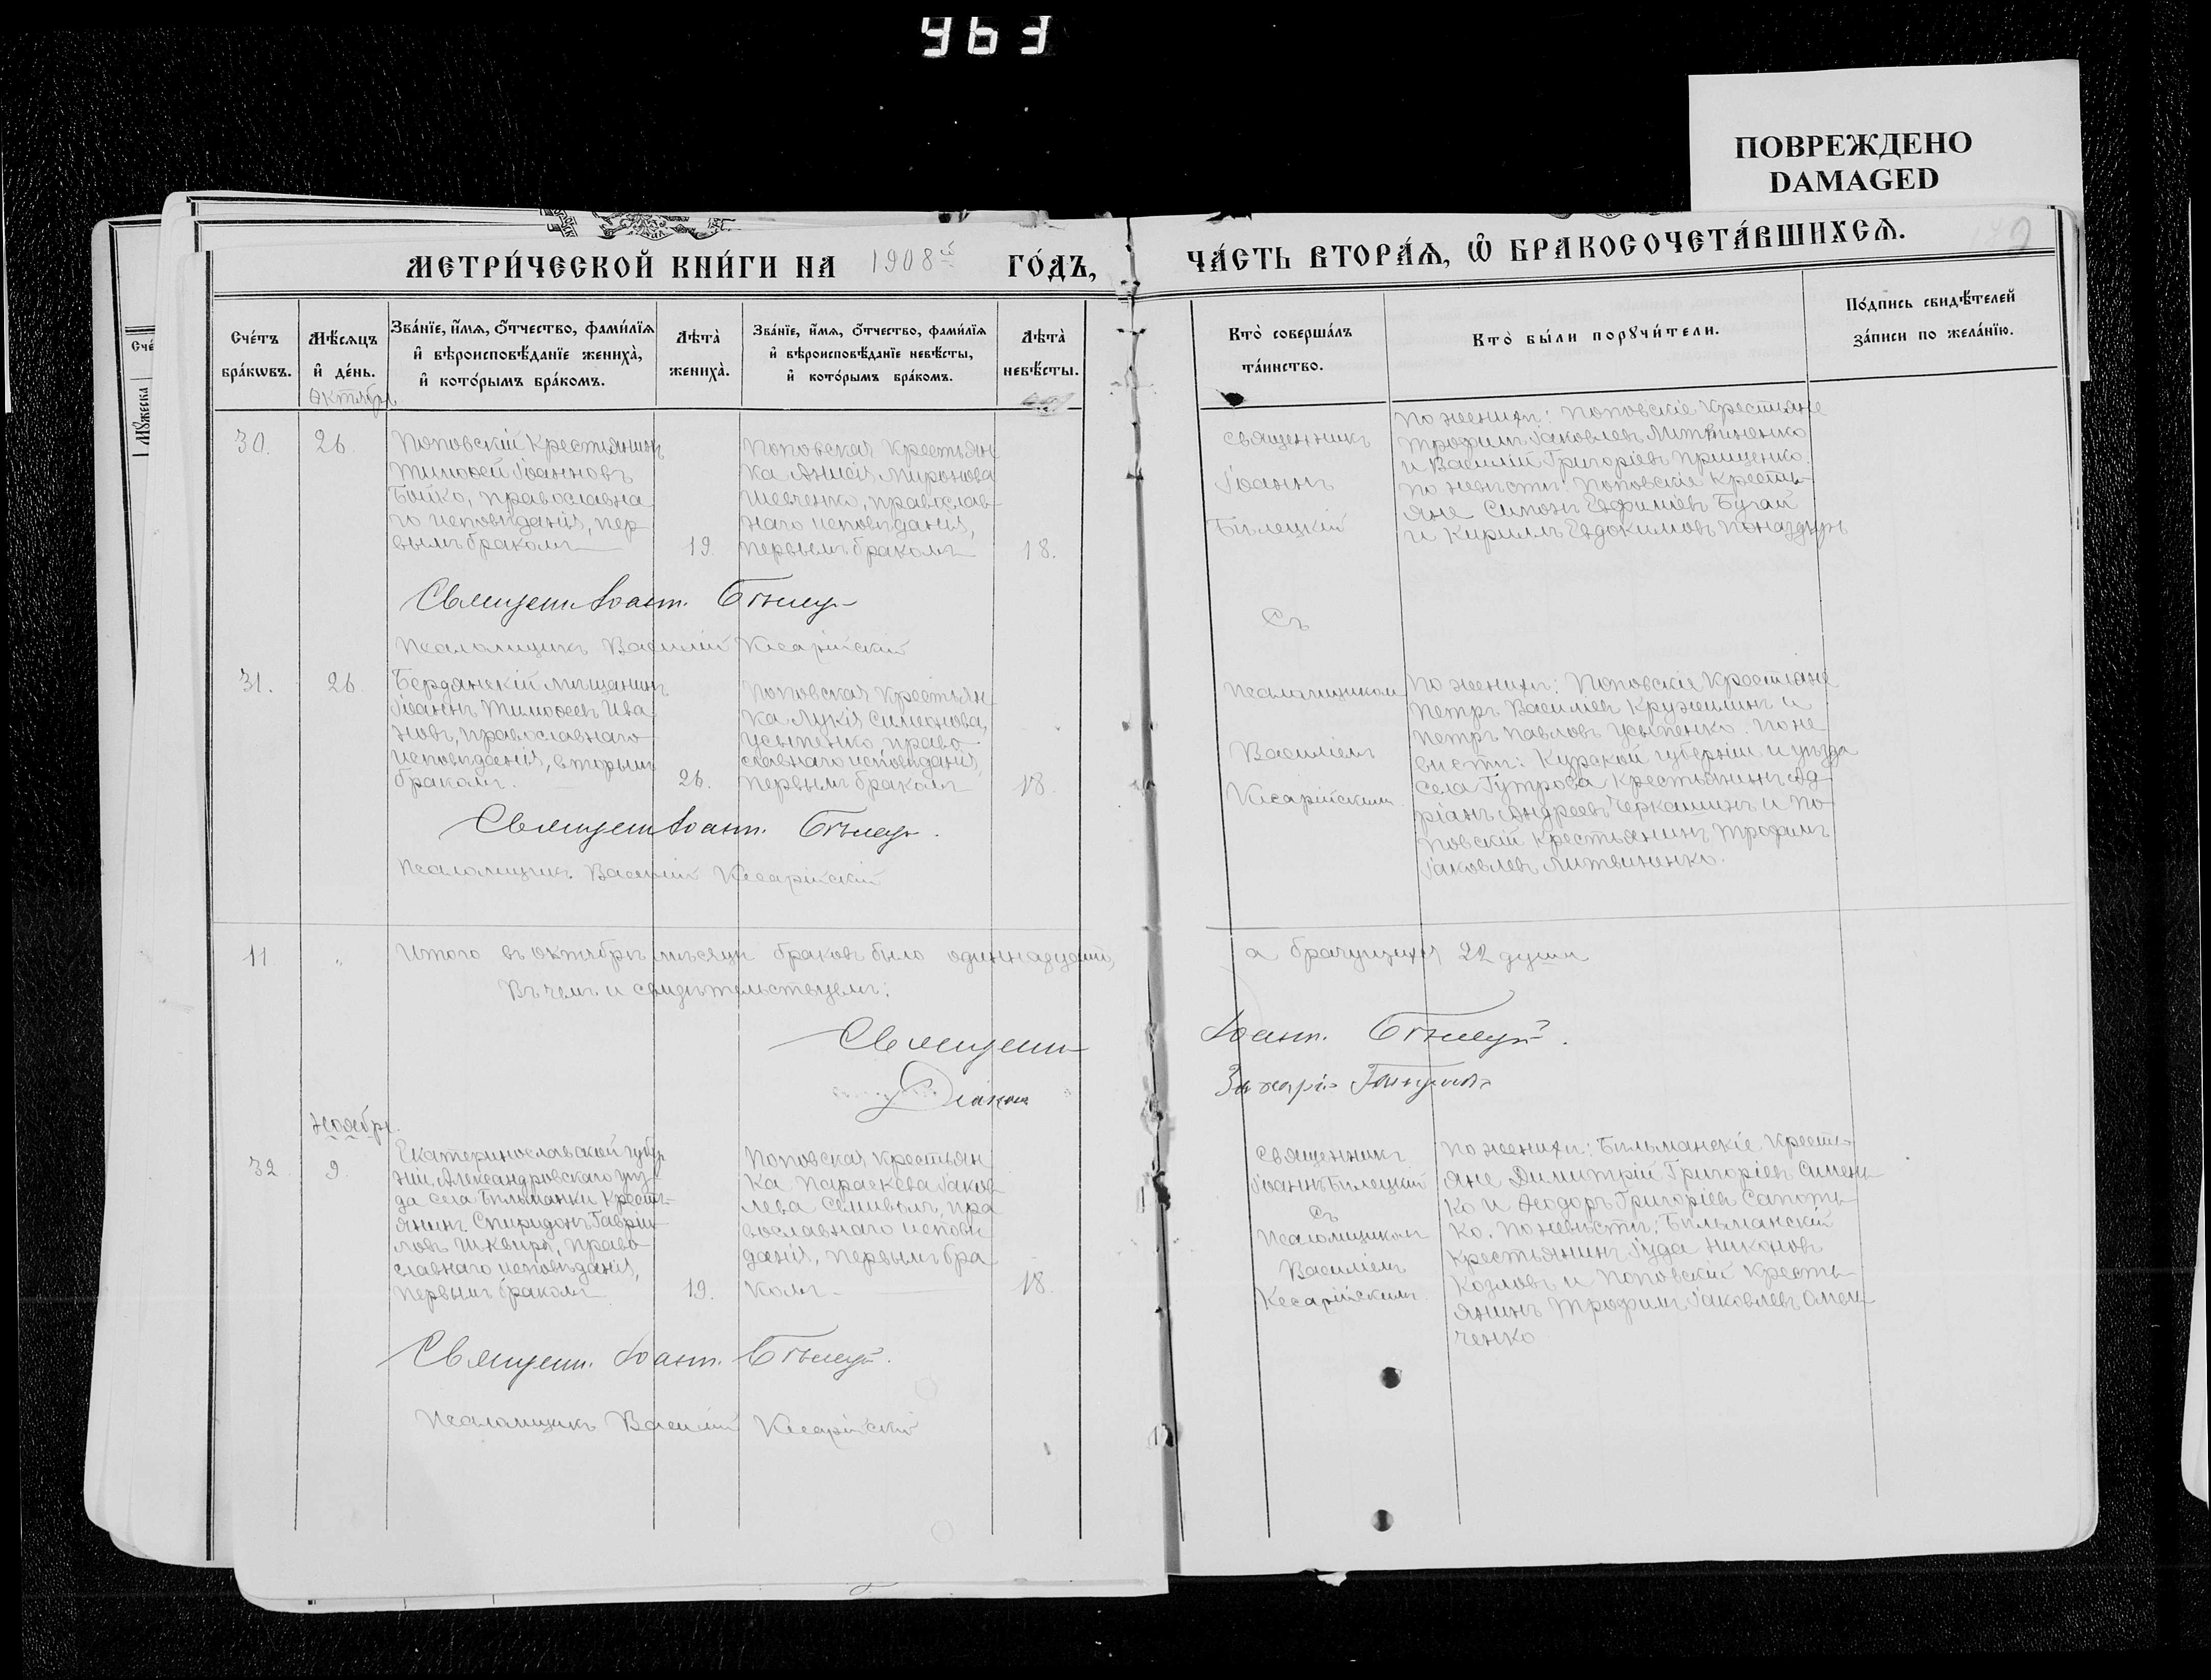 963
ПОВРЕЖДЕНО
DAMAGED
МЕТРИ́ЧЕСКОЙ КНИ́ГИ НА 1908й ГО́ДЪ,
ЧА́СТЬ ВТОРА́Ѧ, Ѽ БРАКОСОЧЕТА́ВШИХСѦ.
Сче́тъ бра́кѡвъ.
Мѣ́сяцъ и҆ де́нь.
Зва́нїе, и҆́мѧ, ѻ҆́тчество, фами́лїѧ
и҆ вѣроисповѣ́данїе жениха̀,
и҆ кото́рымъ бра́комъ.
Лѣта̀ жениха̀.
Зва́нїе, и҆́мѧ, ѻ҆́тчество, фами́лїѧ
и҆ вѣроисповѣ́данїе невѣ́сты,
и҆ кото́рымъ бра́комъ.
Лѣта̀ невѣ́сты.
Кто̀ соверша́лъ
та́инство.
Кто̀ бы́ли порꙋчи́тели.
По́дпись свидѣ́телей
за́писи по жела́нїю.
Октябрь
30.
26.
Поповскій Крестьянинъ
Тимоѳей Іоанновъ
Бойко, православна
го исповѣданія, пер
вымъ бракомъ
19.
Поповская Крестьян
ка Анисія Миронова
Шевченко, православ
наго исповѣданія,
первымъ бракомъ
18.
Священникъ
Іоаннъ
Бѣлецкій
По женихѣ: Поповскіе Крестьяне
Трофимъ Іаковлевъ Литвиненко
и Василій Григоріевъ Прищенко.
По невѣстѣ: Поповскіе Кресть-
яне Симонъ Евфиміевъ Бугай
и Кириллъ Евдокимовъ
Священ. Іоанн. Бѣлец
Псаломщикъ Василій Кесарійскій
Съ
31.
26.
Бердянскій мѣщанинъ
Іоаннъ Тимоѳеевъ Ива
новъ, православнаго
исповѣданія, вторымъ
бракомъ.
26.
Поповская Крестьян
ка Лукія Симеонова,
Усыпенко, право-
славнаго исповѣданія,
первымъ бракомъ
18.
Псаломщикомъ
Василіемъ
Кесарійскимъ.
По женихѣ: Поповскіе Крестьяне
Петръ Василіевъ Кружилинъ и
Петръ Павловъ Усыпенко. По не
вѣстѣ: Курской губерніи и уѣзда
села Гутрова Крестьянинъ Ад-
ріанъ Андреевъ Черкашинъ и По-
повскій Крестьянинъ Трофимъ
Іаковлевъ Литвиненко.
Священ Іоанн. Бѣлец.
Псаломщикъ Василій Кесарійскій
11
"
Итого въ октябрѣ мѣсяцѣ браковъ было одиннадцать,
а брачущихся 22 души
Въ чемъ и свидѣтельствуемъ:
Священ Іоанн. Бѣлец.
Діаконъ Захарія
Ноябрь.
32
9.
Екатеринославской губер
ніи, Александровскаго уѣз-
да села Бѣльманки Кресть-
янинъ Спиридонъ Гаврии-
ловъ Шквиря, право-
славнаго исповѣданія,
первымъ бракомъ
19.
Поповская Крестьян
ка Параскева Іаков
лева Сенивол, пра
вославнаго исповѣ
данія, первымъ бра
комъ
18.
Священникъ
Іоаннъ Бѣлецкій
съ
Псаломщикомъ
Василіемъ
Кесарійскимъ.
По женихѣ: Бѣльманскіе Кресть-
яне Димитрій Григоріевъ Симень-
ко и Ѳеодоръ Григоріевъ Сапоть-
ко. По невѣстѣ: Бѣльманскій
Крестьянинъ Іуда Никоновъ
Козловъ и Поповскій Кресть-
янинъ Трофимъ Іаковлевъ Омель-
ченко
Священ. Іоанн. Бѣлец.
Псаломщикъ Василій Кесарійскій